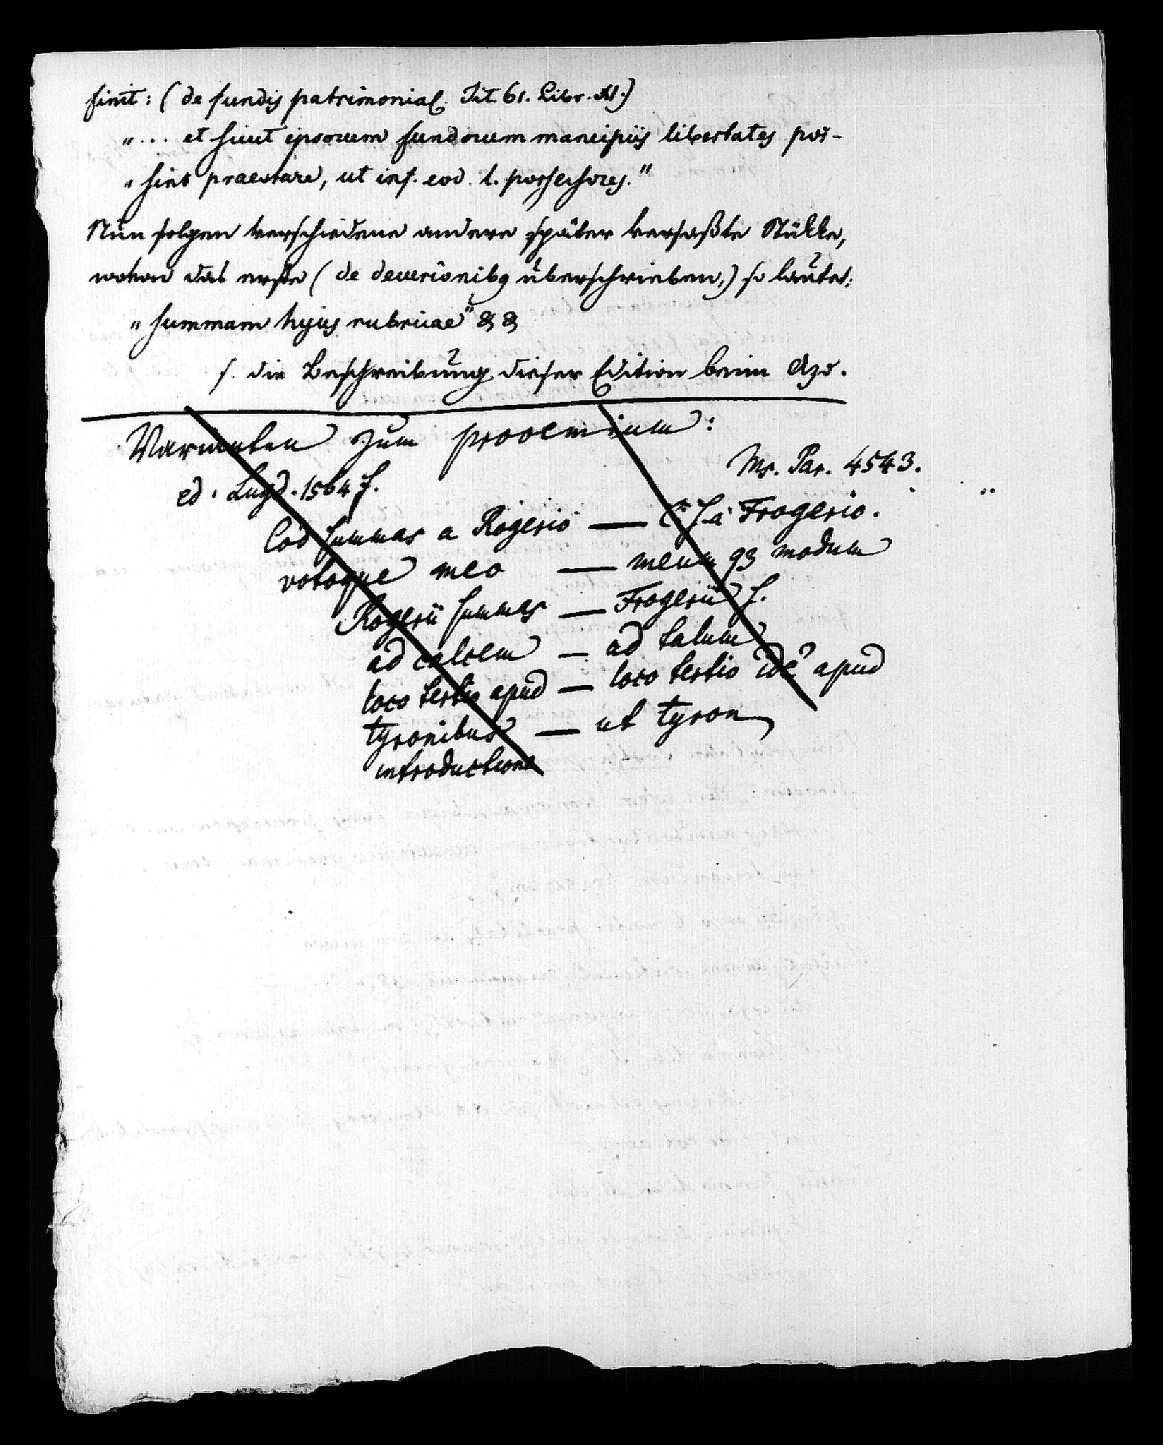 finit: (de fundis patrimonial. Tit 61. Libr. XI.)
„... et sicut ipsorum fundorum mancipiis libertates pos-
„sint praestare, ut inf. eod. l. possessores."
Nun folgen verschiedene andere später verfaßte Stükke,
wovon das erste (de deversionibus überschrieben,) so lautet:
„summam hujus rubricae" & &
s. die Beschreibung dieser Edition beim Azo.
Varianten zum prooemium:
ed. Lugd. 1564 f. Ms. Par. 4543.
Cod summas a Rogerio — C. S. a Frogerio.
votoque meo — meum modum
Rogerii summas — Frogerii S.
ad calcem — ad talum
loco tertio apud — loco tertio idē apud
tyronibus — ut tyron
introductione